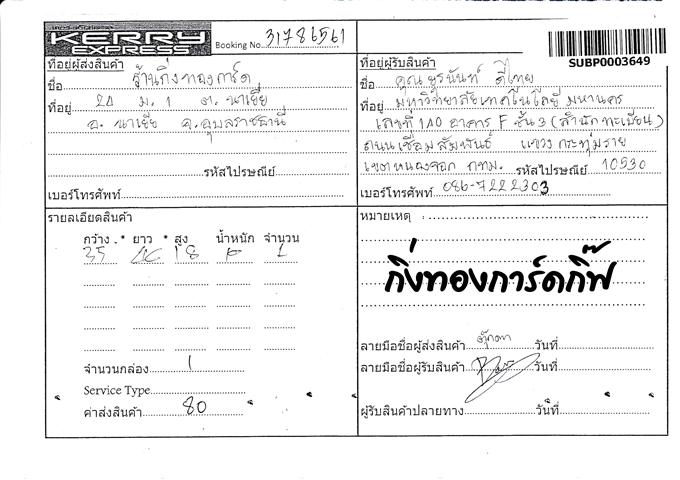 KERRY
EXPRESS
Booking No. 31786561
SUBP0003649
ที่อยู่ผู้ส่งสินค้า
ชื่อ ร้านกิ่งทองการ์ด
ที่อยู่ 20 ม. 1 ต. นาเยีย
อ. นาเยีย จ. อุบลราชธานี
รหัสไปรษณีย์
เบอร์โทรศัพท์
ที่อยู่ผู้รับสินค้า
ชื่อ คุณ ยุรนันท์ ดีไทย
ที่อยู่ มหาวิทยาลัยเทคโนโลยี มหานคร
เลขที่ 140 อาคาร F ชั้น 3 (สำนักทะเบียน)
ถนนเชื่อมสัมพันธ์ แขวง กระทุ่มราย
เขตหนองจอก กทม. รหัสไปรษณีย์ 10530
เบอร์โทรศัพท์ 086-7222303
รายละเอียดสินค้า
กว้าง * ยาว * สูง น้ำหนัก จำนวน
35 18 1
จำนวนกล่อง 1
Service Type
ค่าส่งสินค้า 80
หมายเหตุ :
กิ่งทองการ์ดกิ๊ฟ
ลายมือชื่อผู้ส่งสินค้า ตุ๊กตา วันที่
ลายมือชื่อผู้รับสินค้า วันที่
ผู้รับสินค้าปลายทาง วันที่